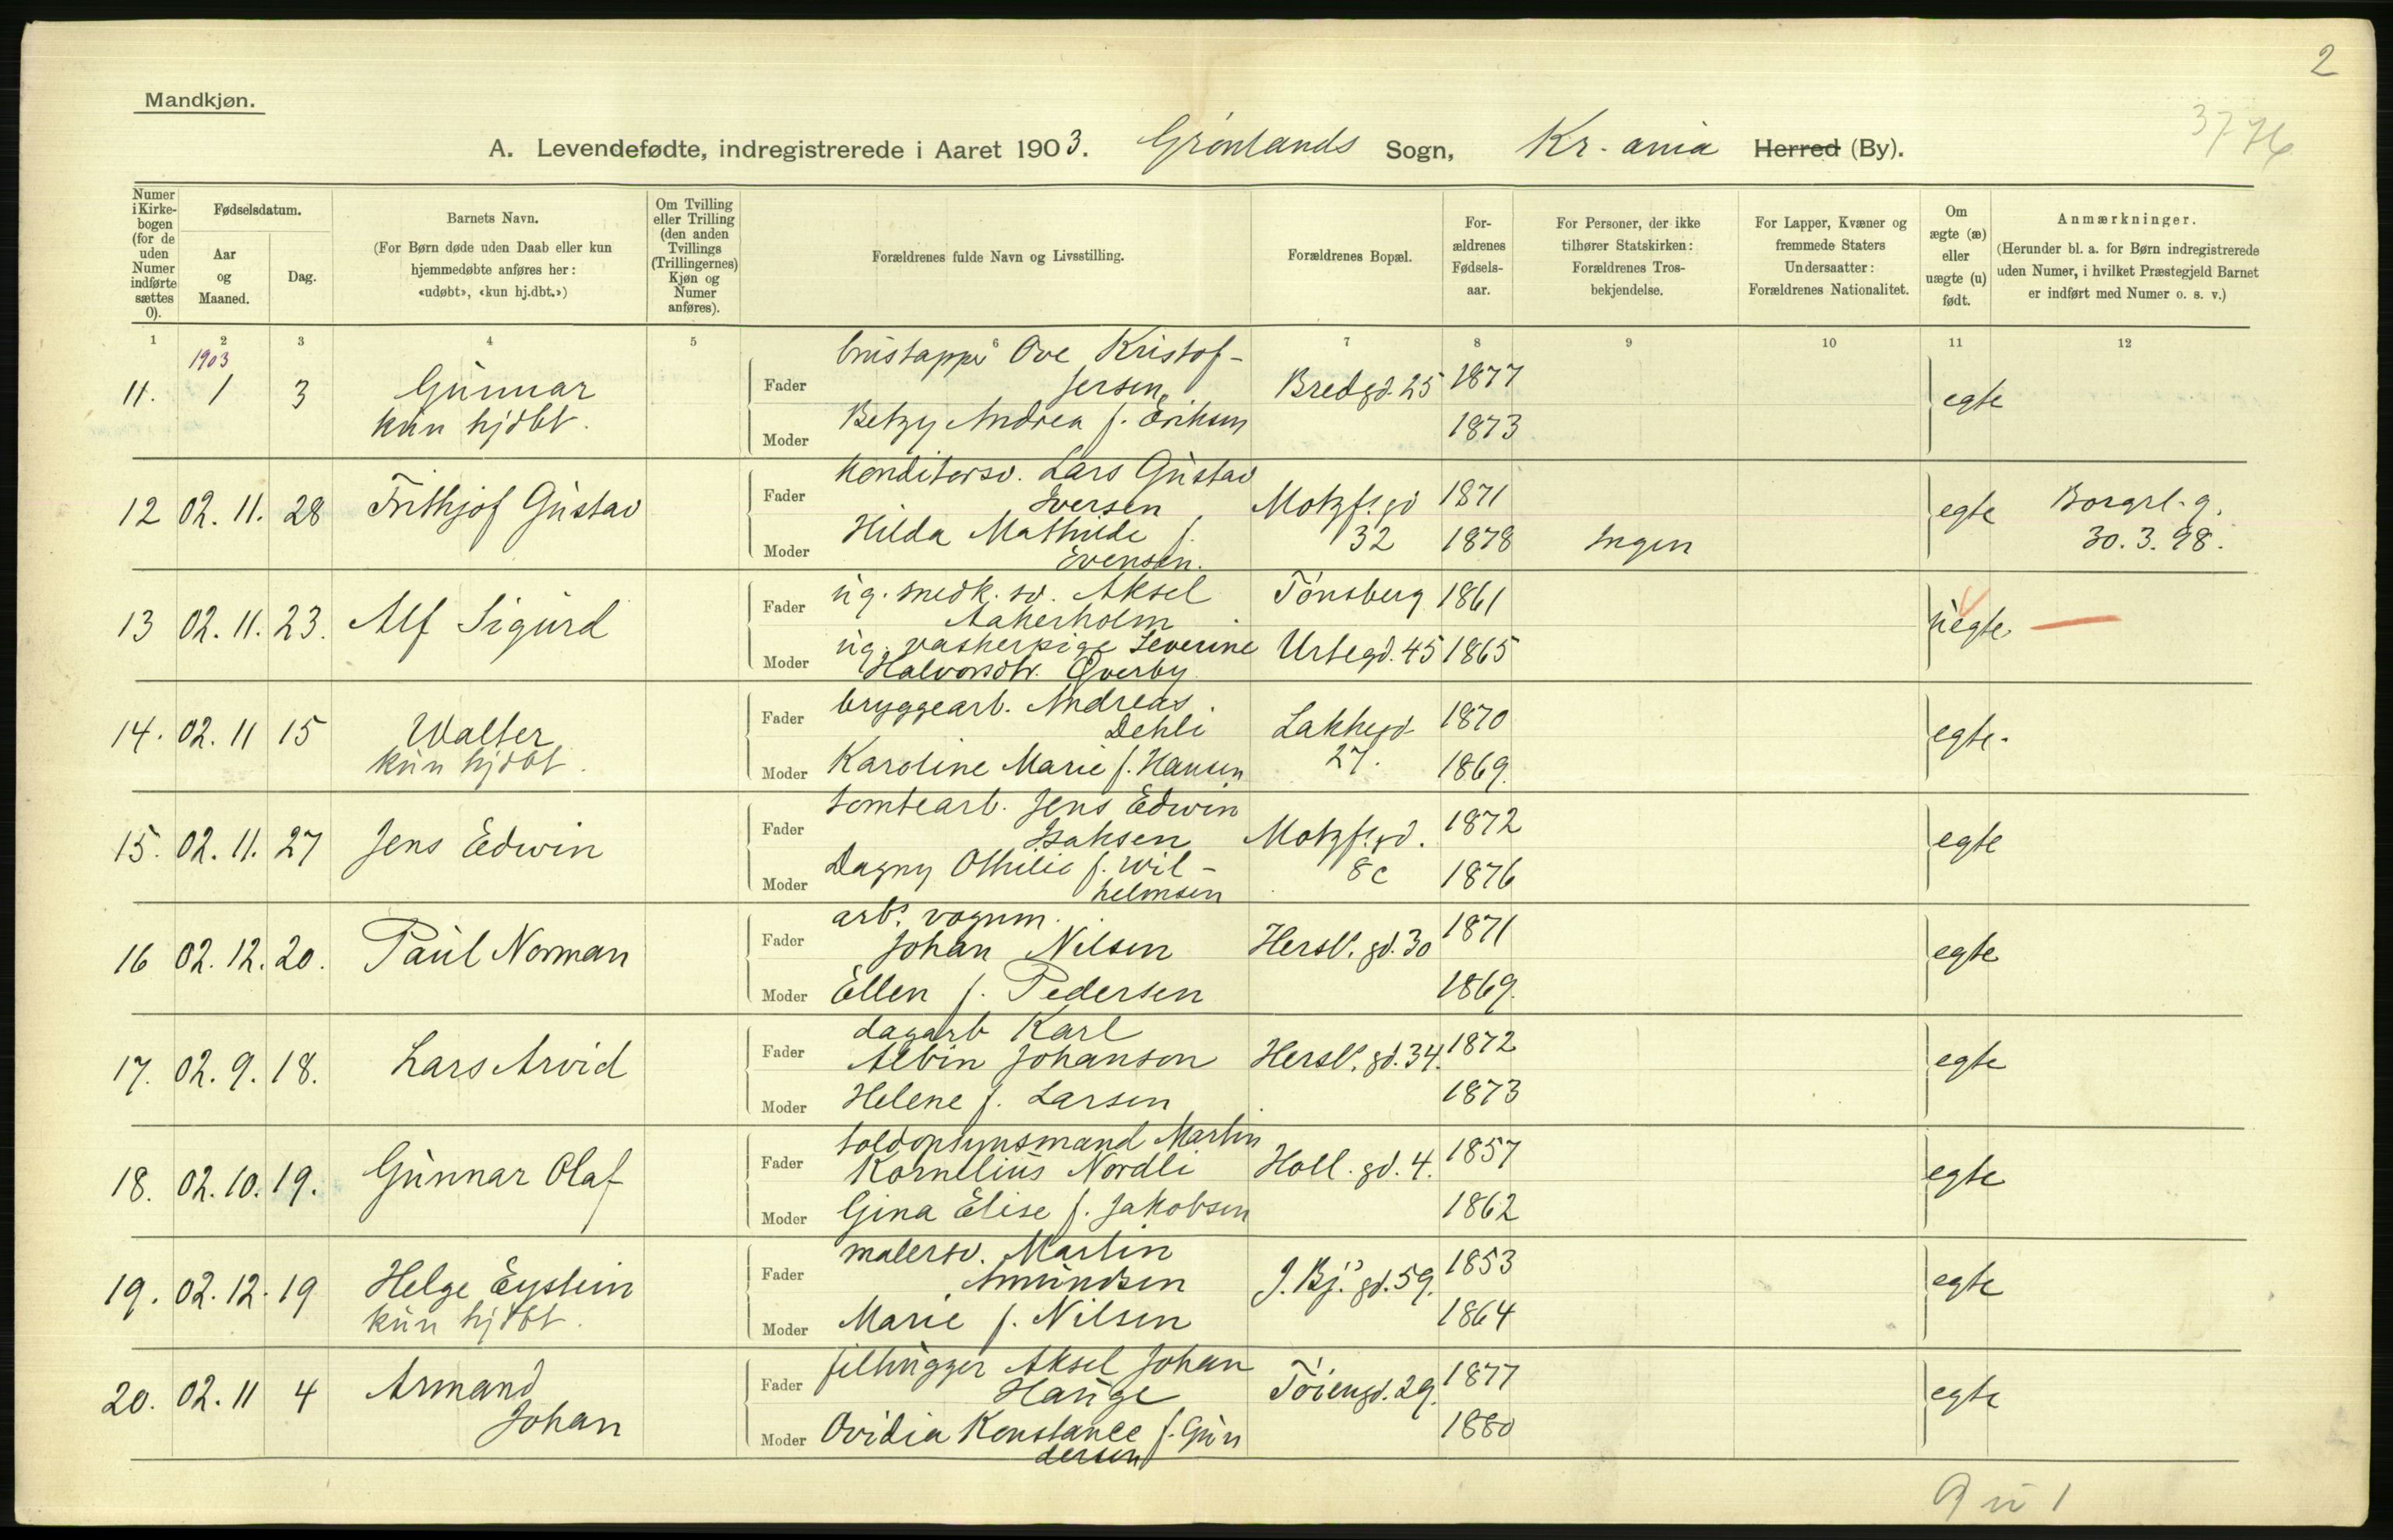 2
Mandkjøn.
3776
A. Levendefødte, indregistrerede i Aaret 1903. Grønlands Sogn, Kr.ania Herred (By).
Numer i Kirkebogen (for de uden Numer indførte sættes 0).
Fødselsdatum.
Aar og Maaned.
Dag.
Barnets Navn.
(For Børn døde uden Daab eller kun hjemmedøbte anføres her: «udøbt», «kun hj.dbt.»)
Om Tvilling eller Trilling (den anden Tvillings (Trillingernes) Kjøn og Numer anføres).
Forældrenes fulde Navn og Livsstilling.
Forældrenes Bopæl.
For-ældrenes Fødsels-aar.
For Personer, der ikke tilhører Statskirken: Forældrenes Tros-bekjendelse.
For Lapper, Kvæner og fremmede Staters Undersaatter: Forældrenes Nationalitet.
Om ægte (æ) eller uægte (u) født.
Anmærkninger.
(Herunder bl. a. for Børn indregistrerede uden Numer, i hvilket Præstegjeld Barnet er indført med Numer o. s. v.)
1 2 3 4 5 6 7 8 9 10 11 12
1903
11. 1 3 Gunnar
kun hjdbt.
Fader Ove Kristof-
fersen, Bredgd. 25 1877
Moder Betzy Andrea f. Eriksen 1873
egte
12 02. 11. 28 Frithjof Gustav
Fader Konditorsv. Lars Gustav
Iversen Motzf. gd 1871
Moder Hilda Mathilde f.
Evensen. 32 1878 Ingen
egte Borgrl. g.
30. 3. 98.
13 02. 11. 23. Alf Sigurd
Fader ug. snedk. sv. Aksel
Aakerholm Tønsberg 1861
Moder ug. vaskerpige Severine
Halvorsdtr. Øverby Urtegd. 45 1865
uegte
14. 02. 11 15 Walter
kun hjdbt.
Fader bryggearb. Andreas
Dehli Lakkegd 1870
Moder Karoline Marie f. Hansen 27. 1869.
egte.
15. 02. 11. 27 Jens Edwin
Fader tomtearb. Jens Edwin
Isaksen Motzf. gd. 1872
Moder Dagny Othilie f. Wil-
helmsen 8c 1876
egte
16 02. 12. 20. Paul Norman
Fader arb. vognm.
Johan Nilsen Hersl. gd. 30 1871
Moder Ellen f. Pedersen 1869.
egte
17. 02. 9. 18. Lars Arvid
Fader dagarb Karl
Albin Johanson Hersl. gd. 34. 1872
Moder Helene f. Larsen 1873
egte
18. 02. 10. 19. Gunnar Olaf
Fader toldopsynsmand Martin
Kornelius Nordli Holl. gd. 4. 1857
Moder Gina Elise f. Jakobsen 1862
egte
19. 02. 12. 19 Helge Eystein
kun hjdbt.
Fader malersv. Martin
Amundsen J. Bj. gd. 59. 1853
Moder Marie f. Nilsen 1864
egte
20. 02. 11 4 Armand
Johan
Fader filhugger Aksel Johan
Hauge Tøiengd. 29. 1877
Moder Ovidia Konstance f. Gun
dersen 1880
egte
9 u 1